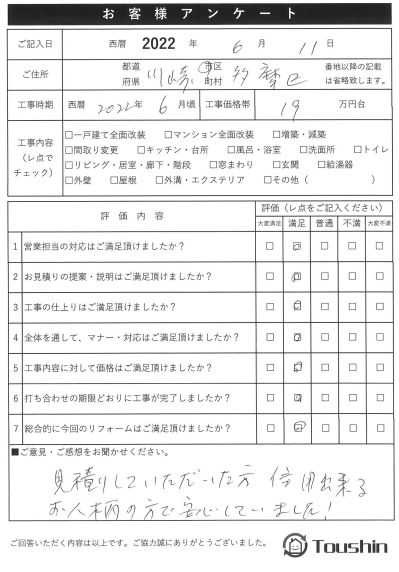 お客様アンケート
ご記入日 西暦 2022 年 6 月 11 日
ご住所 川崎 都道府県 市区町村 多摩区 番地以降の記載は省略致します。
工事時期 西暦 2022 年 6 月頃 工事価格帯 19 万円台
工事内容(レ点でチェック)
□一戸建て全面改装 □マンション全面改装 □増築・減築
□間取り変更 □キッチン・台所 □風呂・浴室 □洗面所 □トイレ
□リビング・居室・廊下・階段 □窓まわり □玄関 □給湯器
□外壁 □屋根 □外溝・エクステリア □その他( )
評価内容 評価(レ点をご記入ください)
大変満足 満足 普通 不満 大変不満
1 営業担当の対応はご満足頂けましたか? □ □ □ □ □
2 お見積りの提案・説明はご満足頂けましたか? □ □ □ □ □
3 工事の仕上りはご満足頂けましたか? □ □ □ □ □
4 全体を通して、マナー・対応はご満足頂けましたか? □ □ □ □ □
5 工事内容に対して価格はご満足頂けましたか? □ □ □ □ □
6 打ち合わせの期限どおりに工事が完了しましたか? □ □ □ □ □
7 総合的に今回のリフォームはご満足頂けましたか? □ □ □ □ □
■ご意見・ご感想をお聞かせください。
見積りしていただいた方 信用出来る
お人柄の方で安心していました!
ご回答いただく内容は以上です。ご協力誠にありがとうございました。
Toushin